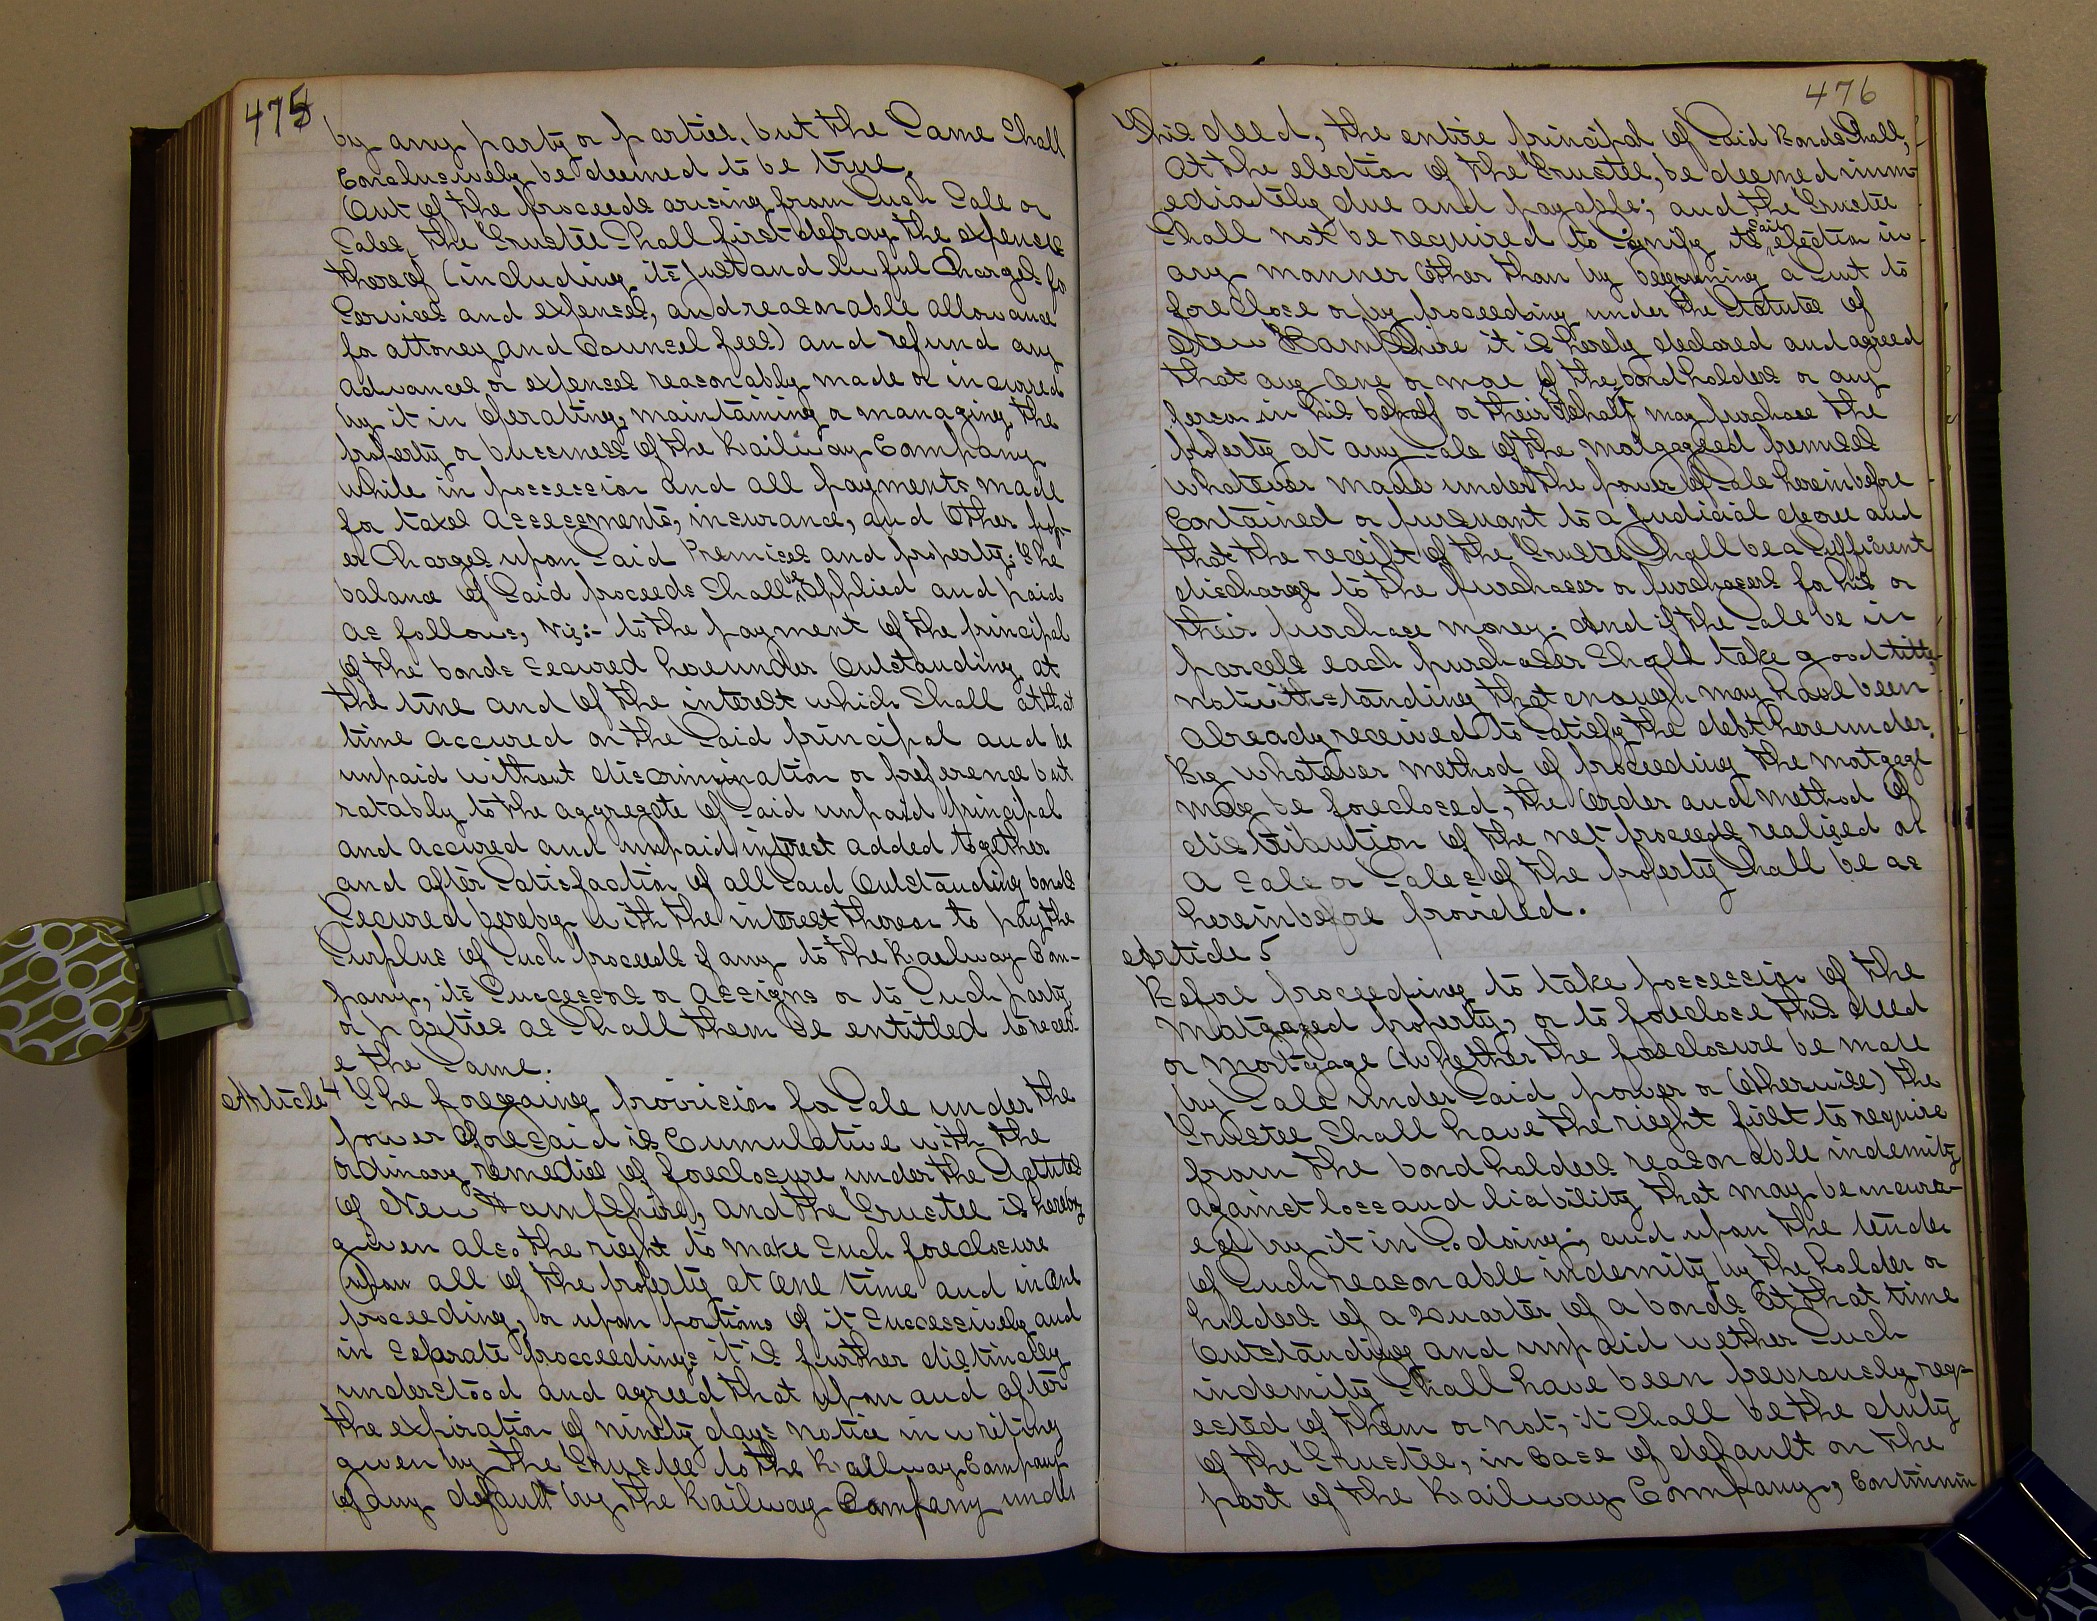 475
by any party or parties, but the Same Shall
Conclusively be deemed to be true.
Out of the proceeds arising from Such Sale or
Sales, the Trustee Shall first defray the expense
thereof (including its just and lawful Charges for
Services and expenses, and reasonable allowance
for attorney and Counsel fees) and refund any
advances or expenses reasonably made or incurred
by it in Operating, maintaining or managing the
property or business of the Railway Company
while in possession and all payments made
for taxes assessments, insurance, and Other prop-
er Charges upon Said Premises and property; The
balance of Said proceeds Shall be applied and paid
as follows, Viz:- to the payment of the principal
of the bonds secured hereunder Outstanding at
the time and of the interest which Shall at that
time accured on the Said principal and be
unpaid without discrimination or preference but
ratably to the aggregate of Said unpaid principal
and accured and unpaid interest added together
and after Satisfaction of all Said Outstanding bonds
Secured hereby with the interest thereon to pay the
Surplus of Such proceeds if any to the Railway Com-
pany, its Successors or assigns or to Such party
or parties as Shall them be entitled to receiv-
e the Same.
Article 4 The foregoing provision for Sale under the
power aforesaid is Cumulative with the
ordinary remedies of foreclosure under the Statutes
of New Hampshire, and the Trustee is hereby
given also the right to make Such foreclosure
upon all of the property at One time and in One
proceeding, or upon portions of it Successively and
in separate proceedings it is further distinctly
understood and agreed that upon and after
the expiration of ninety days notice in writing
given by the Trustee to the Railway Company
of any default by the Railway Company under
476
This deed, the entire principal of Said Bonds Shall,
At the election of the Trustee, be deemed imm-
ediately due and payable; and the Trustee
Shall not be required to Signify its said election in
any manner Other than by beginning a Suit to
foreclose or by proceeding under the Statutes of
New Hampshire it is hereby declared and agreed
that any One or more of the bondholders or any
person in his behalf or their behalf may purchase the
property at any Sale of the motgageed premises
whatever made under the power of Sale hereinbefore
Contained or pursuant to a Judicial decree and
that the receipt of the Trustee Shall be a Sufficient
discharge to the purchaser or purchasers for his or
their purchase money. And if the Sale be in
parcels each purchaser Shall take good title
notwithstanding that enough may have been
already received to Satisfy the debt hereunder.
By whatever method of proceeding the motgage
may be foreclosed, the Order and Method of
distribution of the net proceeds realized at
a Sale or Sales of the property Shall be as
hereinbefore provided.
Article 5
Before proceeding to take possession of the
Matgaged property, or to foreclose this deed
or Mortgage (Whether the foreclosure be made
by Sale under Said power or Otherwise) the
Trustee Shall have the right first to require
from the bondholders reasonable indemity
against loss and liability that may be incurr-
ed by it in So doing; and upon the tender
of Such reasonable indemity by the holder or
holders of a Quarter of a bonds At that time
Outstanding and unpaid wether Such
indemity Shall have been previously requ-
ested of them or not, it Shall be the duty
of the Trustee, in Case of default on the
part of the Railway Company, Continuin